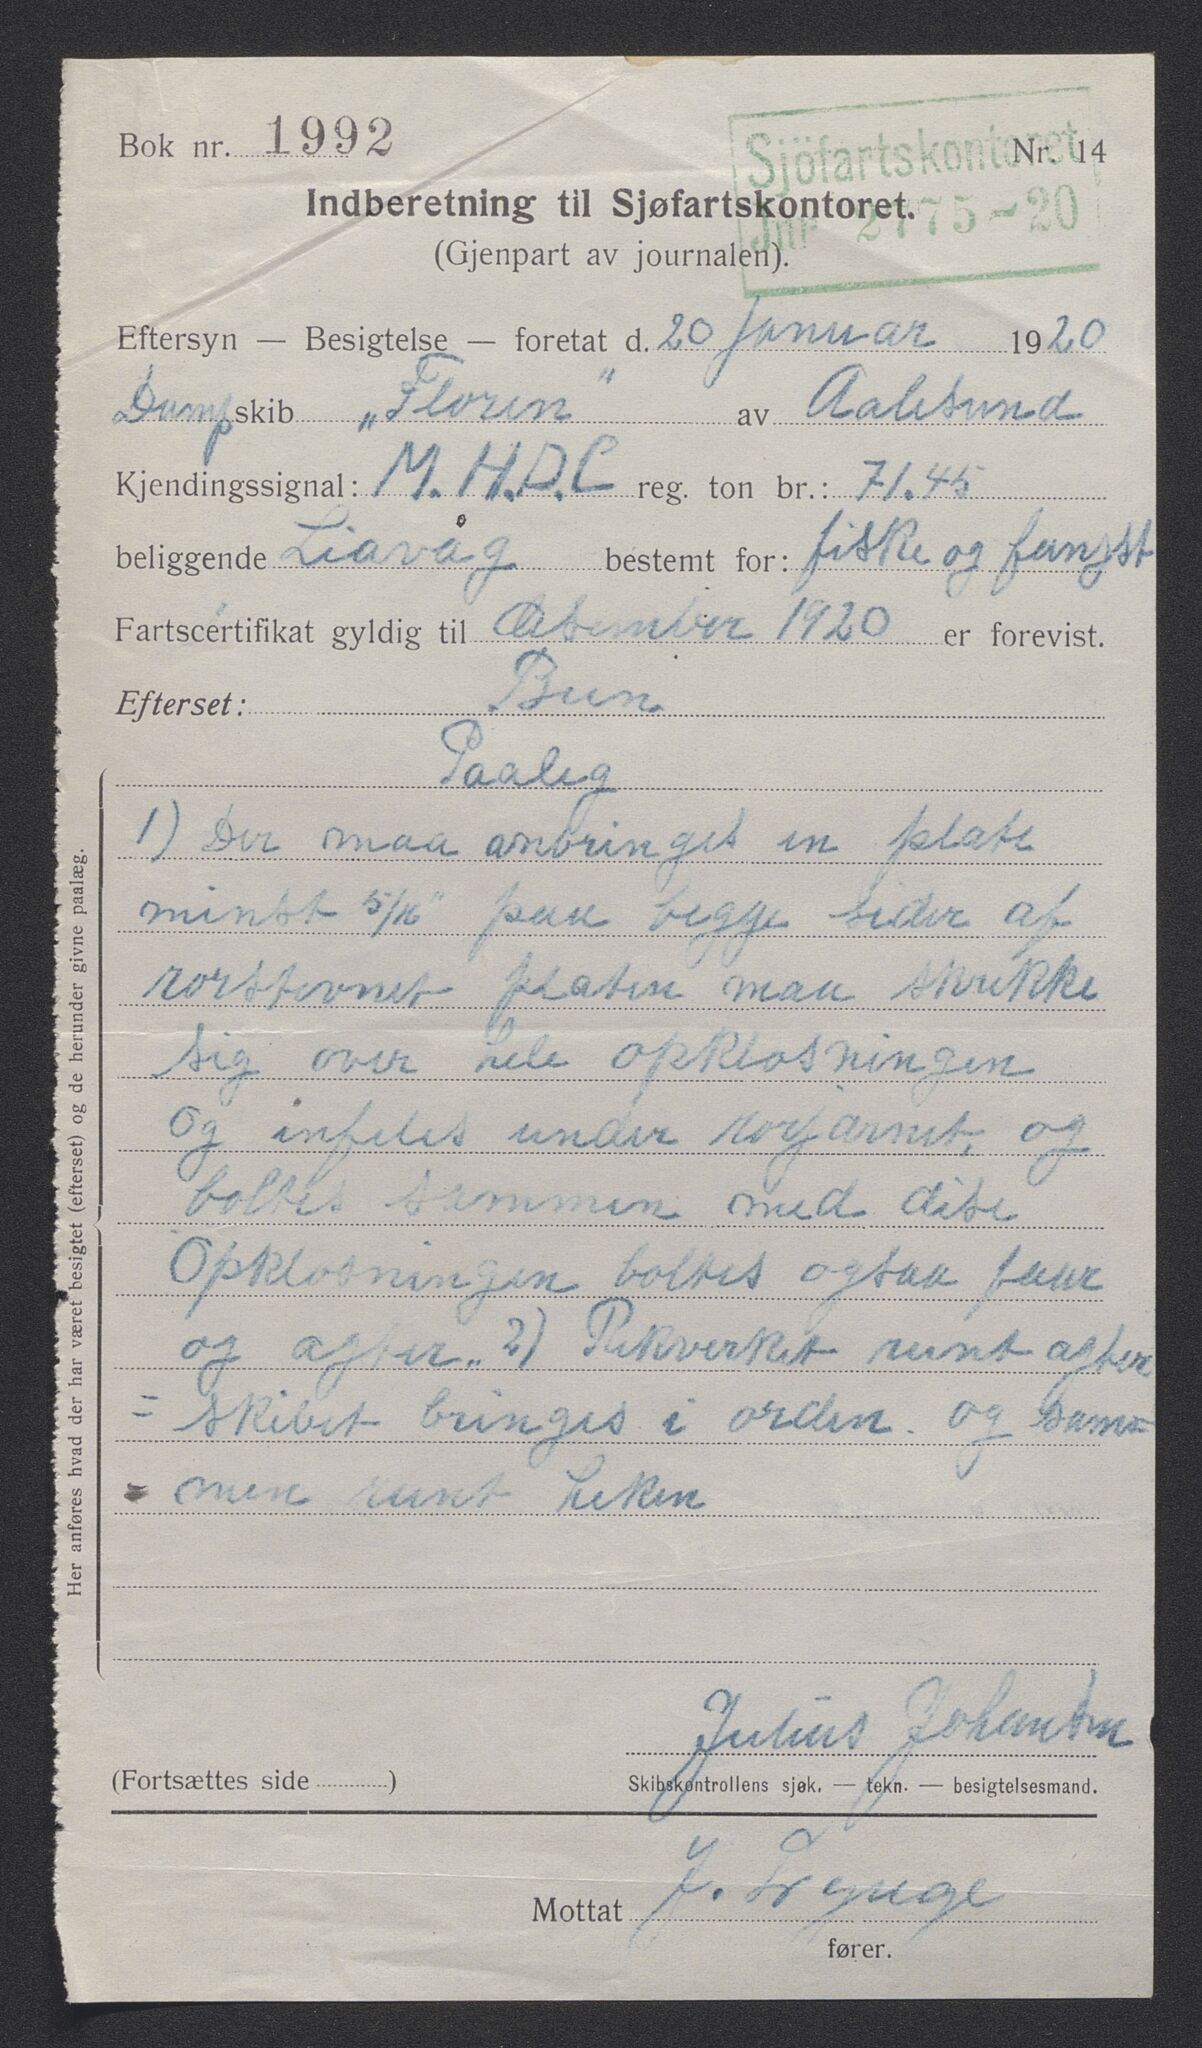 Sjöfartskontoret
Jnr 2775-20
Bok nr. 1992 Nr. 14
Indberetning til Sjøfartskontoret.
(Gjenpart av journalen).
Eftersyn — Besigtelse — foretat d. 20 Januar 1920
Dampskib „Floren" av Aalesund
Kjendingssignal: M.H.D.C reg. ton br.: 71.45
beliggende Liavåg bestemt for: fiske og fangst
Fartscertifikat gyldig til desember 1920 er forevist.
Efterset: Bun.
Paaleg
1) Der maa anbringes en plate
minst 5/16" paa begge sider af
rorstevnet platen maa strekke
sig over hele opklosningen
og infeles under rorjarnet, og
boltes sammen med dise
Opklosningen boltes ogsaa faar
og agter. 2) Rekverket runt agter
= skibet bringes i orden. og sam=
= men runt heken
Her anføres hvad der har været besigtet (efterset) og de herunder givne paalæg.
Julius Johansen
(Fortsættes side ) Skibskontrollens sjøk. — tekn. — besigtelsesmand.
Mottat J.
fører.